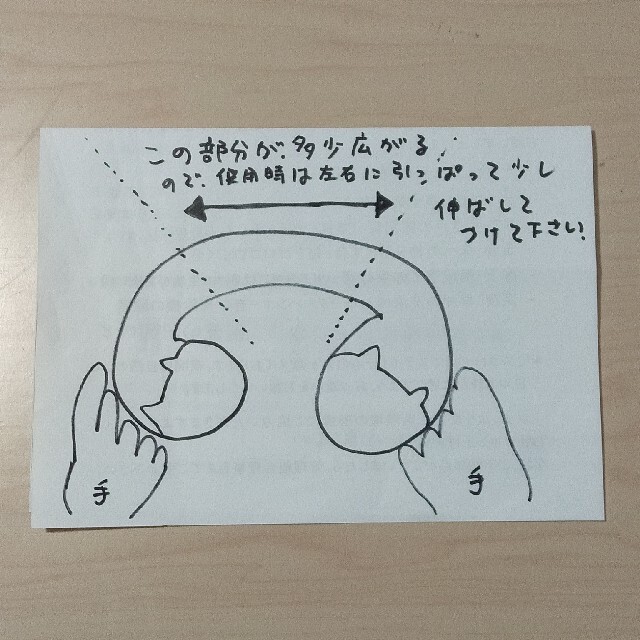 この部分が、多少広がる
ので、使用時は左右に引っぱって少し
伸ばして
つけて下さい!
手
手